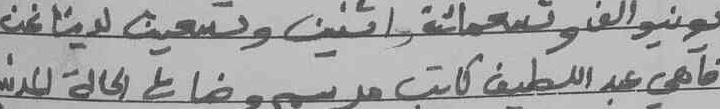 يونيو ألف وتسعمائة واثنين وتسعين لدينا نحن
فاهي عبد اللطيف كاتب مرسم وضابط الحالة المدنية